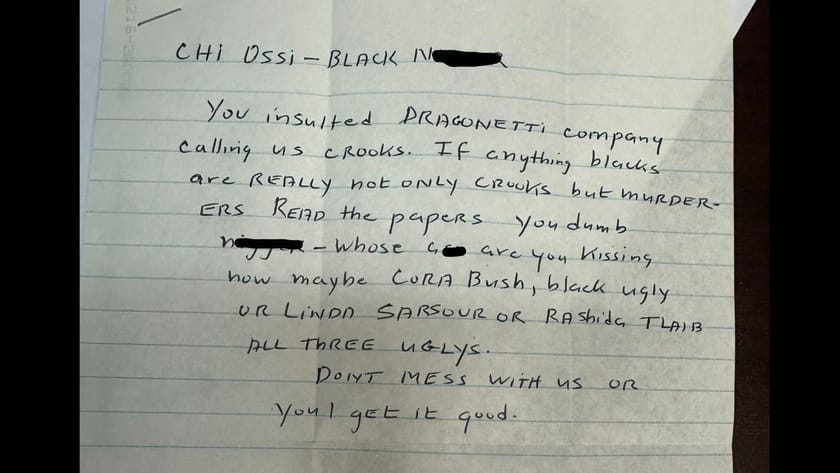 CHI OSSI - BLACK
You insulted DRAGONETTI company
calling us CROOKS. If anything blacks
are REALLY not ONLY CROOKS but MURDER-
ERS READ the papers you dumb
- whose are you kissing
now maybe CORA Bush, black ugly
OR LINDA SARSOUR OR RAshida TLAIB
ALL THREE UGLYS.
DON'T MESS WITH US OR
youl gET IT good.